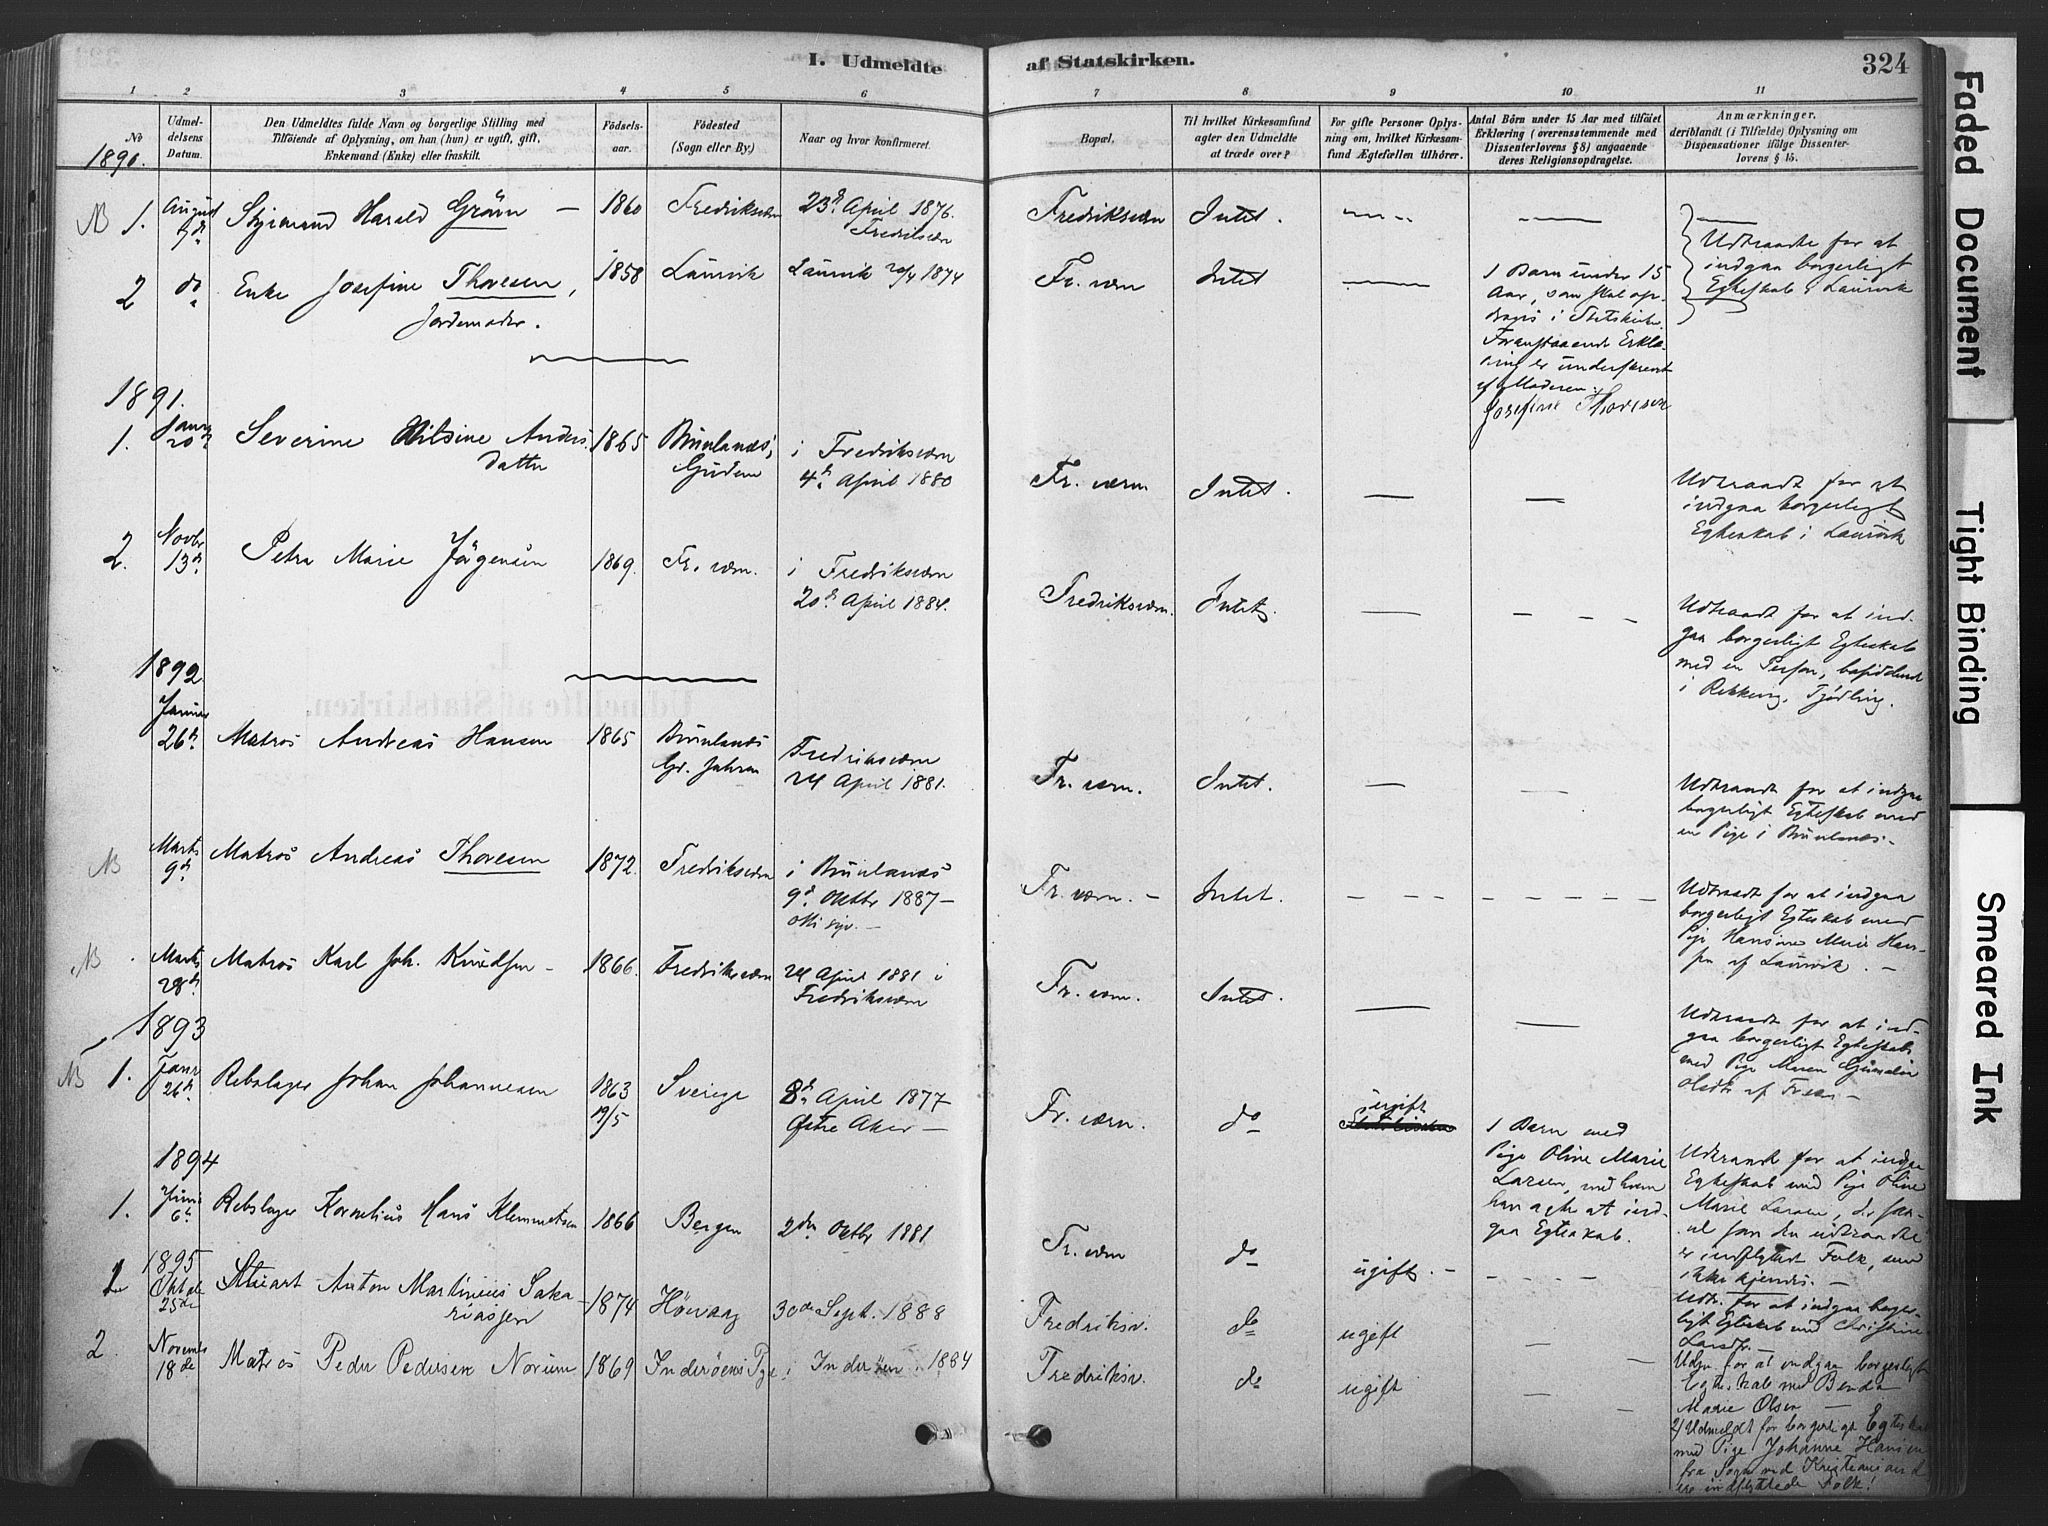 I. Udmeldte af Statskirken.
324
1 2 3 4 5 6 7 8 9 10 11
No
Udmeldelsens Datum.
Den Udmeldtes fulde Navn og borgerlige Stilling med
Tilföiende af Oplysning, om han (hun) er ugift, gift,
Enkemand (Enke) eller fraskilt.
Födselsaar.
Födested
(Sogn eller By.)
Naar og hvor konfirmeret.
Bopæl,
Til hvilket Kirkesamfund
agter den Udmeldte
at træde over?
For gifte Personer Oplysning
om, hvilket Kirkesamfund
Ægtefællen tilhörer.
Antal Börn under 15 Aar med tilföiet
Erklæring (overensstemmende med
Dissenterlovens § 8) angaaende
deres Religionsopdragelse.
Anmærkninger,
deriblandt (i Tilfælde) Oplysning om
Dispensationer ifölge Dissenterlovens § 15.
1890.
NB 1. August
Styrmand Harald Grövn — 1860 Fredriksværn 23d April 1876. Fredriksværn
Fredriksværn Intet.
Udtraadte for at
indgaa borgerligt
Egteskab i Laurvik
2 do Enke Josefine Thoresen, Jordemoder. 1858 Laurvik Laurvik 20/4 1874
Fr. værn Intet
1 Barn under 15
Aar, som skal opdrages
i Statskirken.
Foranstaaende Erklæring
er underskrevet
af Moderen:
Josefine Thoresen
1891.
1. Janr 20d Severine Andersdatter 1865 Brunlanes, i Fredriksværn
4d April 1880
Fr. værn Intet. — —
Udtraadt for at
indgaa borgerligt
Egteskab i Laurvik
2. Novbr 13d Petra Marie Jörgensen 1869. Fr. værn. i Fredriksværn
20d April 1884.
Fredriksværn. Intet. — — — —
Udtraadt for at indgaa
borgerligt Egteskab
med en Person,
i Tjödling.
1892
Januar 26d Matros Andreas Hansen 1865 Brunlanes Fredriksværn
24 April 1881.
Fr. værn. Intet. — —
Udtraadt for at indgaa
borgerligt Egteskab med
en Pige i Brunlanes.
NB Marts 9d Matros Andreas Thoresen 1872. Fredriksværn i Brunlanes
9d Oktbr 1887 —
Fr. værn. — Intet.
Udtraadt for at indgaa
borgerligt Egteskab med
Pige Hansine Marie Hansen
af Laurvik. —
NB Marts 28d Matros Karl Joh. Knudsen — 1866. Fredriksværn 24 April 1881 i
Fredriksværn
Fr. værn. Intet. — —
Udtraadt for at indgaa
borgerligt Egteskab
med Pige Maren
1893
NB 1. Janr 26d Rebslager Johan Johannesen 1863 19/5 Sverige 8d April 1877
Østre Aker —
Fr. værn. do ugift
1 Barn med
Pige Oline Marie
Larsen, med hvem
han agter at indgaa
Egteskab.
Udtraadt for at indgaa
Egteskab med Pige Oline
Marie Larsen,
er indflyttet Folk, som
ikke kjendes. —
1894
1. Juni 6d Rebslager Kornelius Hans Klemmetsen 1866 Bergen 2den Oktbr 1881
Fr. værn do ugift. — — — — —
Udtr. for at indgaa borgerligt
Egteskab med Christine
1895
1 Oktober 25de Stuart Anton Martinius Sakariassen 1874 Hövaag 30de Sept. 1888
Fredriksv. do ugift —
Udm. for at indgaa borgerligt
Egteskab med
Marie Olsen —
2. Novemb. 18de Matros Peder Pedersen Norum 1869 Inderöens i Inderöen 1884
Fredriksv. do ugift —
2) Udmeldt for borgerligt Egteskab
med Pige Johanne Hansen
fra Sogn ved Kristiansand
ere indflyttede Folk!
Faded Document
Tight Binding
Smeared Ink